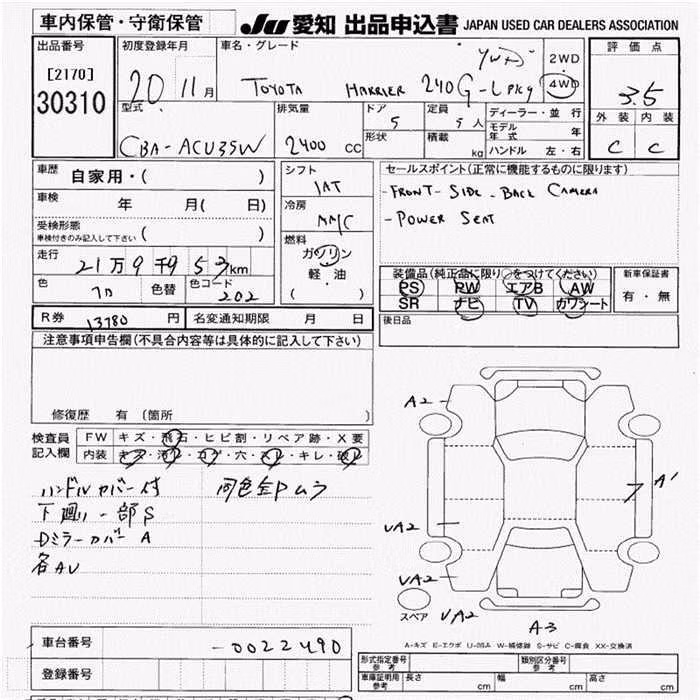 車内保管・守衛保管
JU 愛知 出品申込書 JAPAN USED CAR DEALERS ASSOCIATION
出品番号
[2170]
30310
初度登録年月
20 11月
車名・グレード
TOYOTA HARRIER 240G-L PKg
2WD
4WD
評価点
3.5
外装 内装
C C
型式
CBA-ACU35W
排気量
2400 CC
ドア
5
形状
定員
5人
積載
kg
ディーラー・並行
モデル年式 年
ハンドル 左・右
車歴 自家用・( )
車検 年 月( 日)
受検形態
車検付きのみ記入して下さい ( )
走行
21万9千953km
色
色替
色コード
202
シフト
1AT
冷房
AAC
燃料
ガソリン
軽・油
( )
セールスポイント(正常に機能するものに限ります)
-FRONT-SIDE-BACK CAMERA
-POWER SEAT
装備品(純正品に限り○をつけてください)
PS PW エアB AW
SR ナビ TV カワシート
新車保証書
有・無
R券 13780円 名変通知期限 月 日
後日品
注意事項申告欄(不具合内容等は具体的に記入して下さい)
修復歴 有 〔箇所 〕
検査員記入欄
FW キズ・飛石・ヒビ割・リペア跡・X要
内装 キズ・汚れ・コゲ・穴・スレ・キレ・破れ
ハンドルカバー付 同色全Pムラ
下廻り一部S
DミラーカバーA
各AU
A2
A'
UA2
UA2
UA2
A3
スペア
A-キズ E-エクボ U-凹み W-補修跡 S-サビ C-腐食 XX-交換済
車台番号 -0022490
登録番号
形式指定番号 参考
類別区分番号 参考
車庫証明用 参考 長さ cm 幅 cm 高さ cm